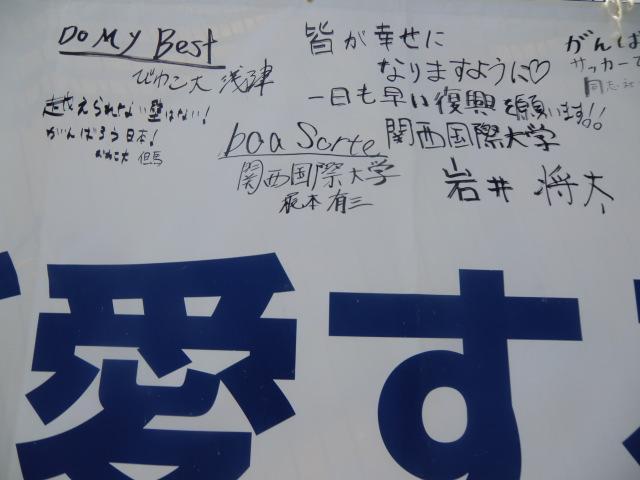 Do My Best
びわこ大 浅津
越えられない壁はない!
がんばろう日本!
びわこ大 但馬
皆が幸せに
なりますように♡
一日も早い復興を願います!!
関西国際大学
岩井 将太
boa Sorte
関西国際大学
梶本 有三
がんば
サッカーで
同志社
愛す